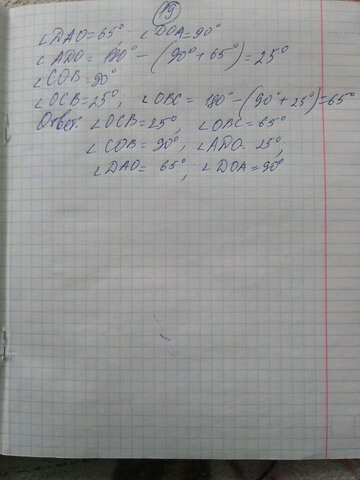 19
∠DAO=65° ∠DOA=90°
∠ADO = 180° - (90°+65°)=25°
∠COB=90°
∠OCB=25°, ∠OBC = 180°-(90°+25°)=65°
Ответ: ∠OCB=25°, ∠OBC=65°
∠COB=90°, ∠ADO=25°,
∠DAO=65°, ∠DOA=90°